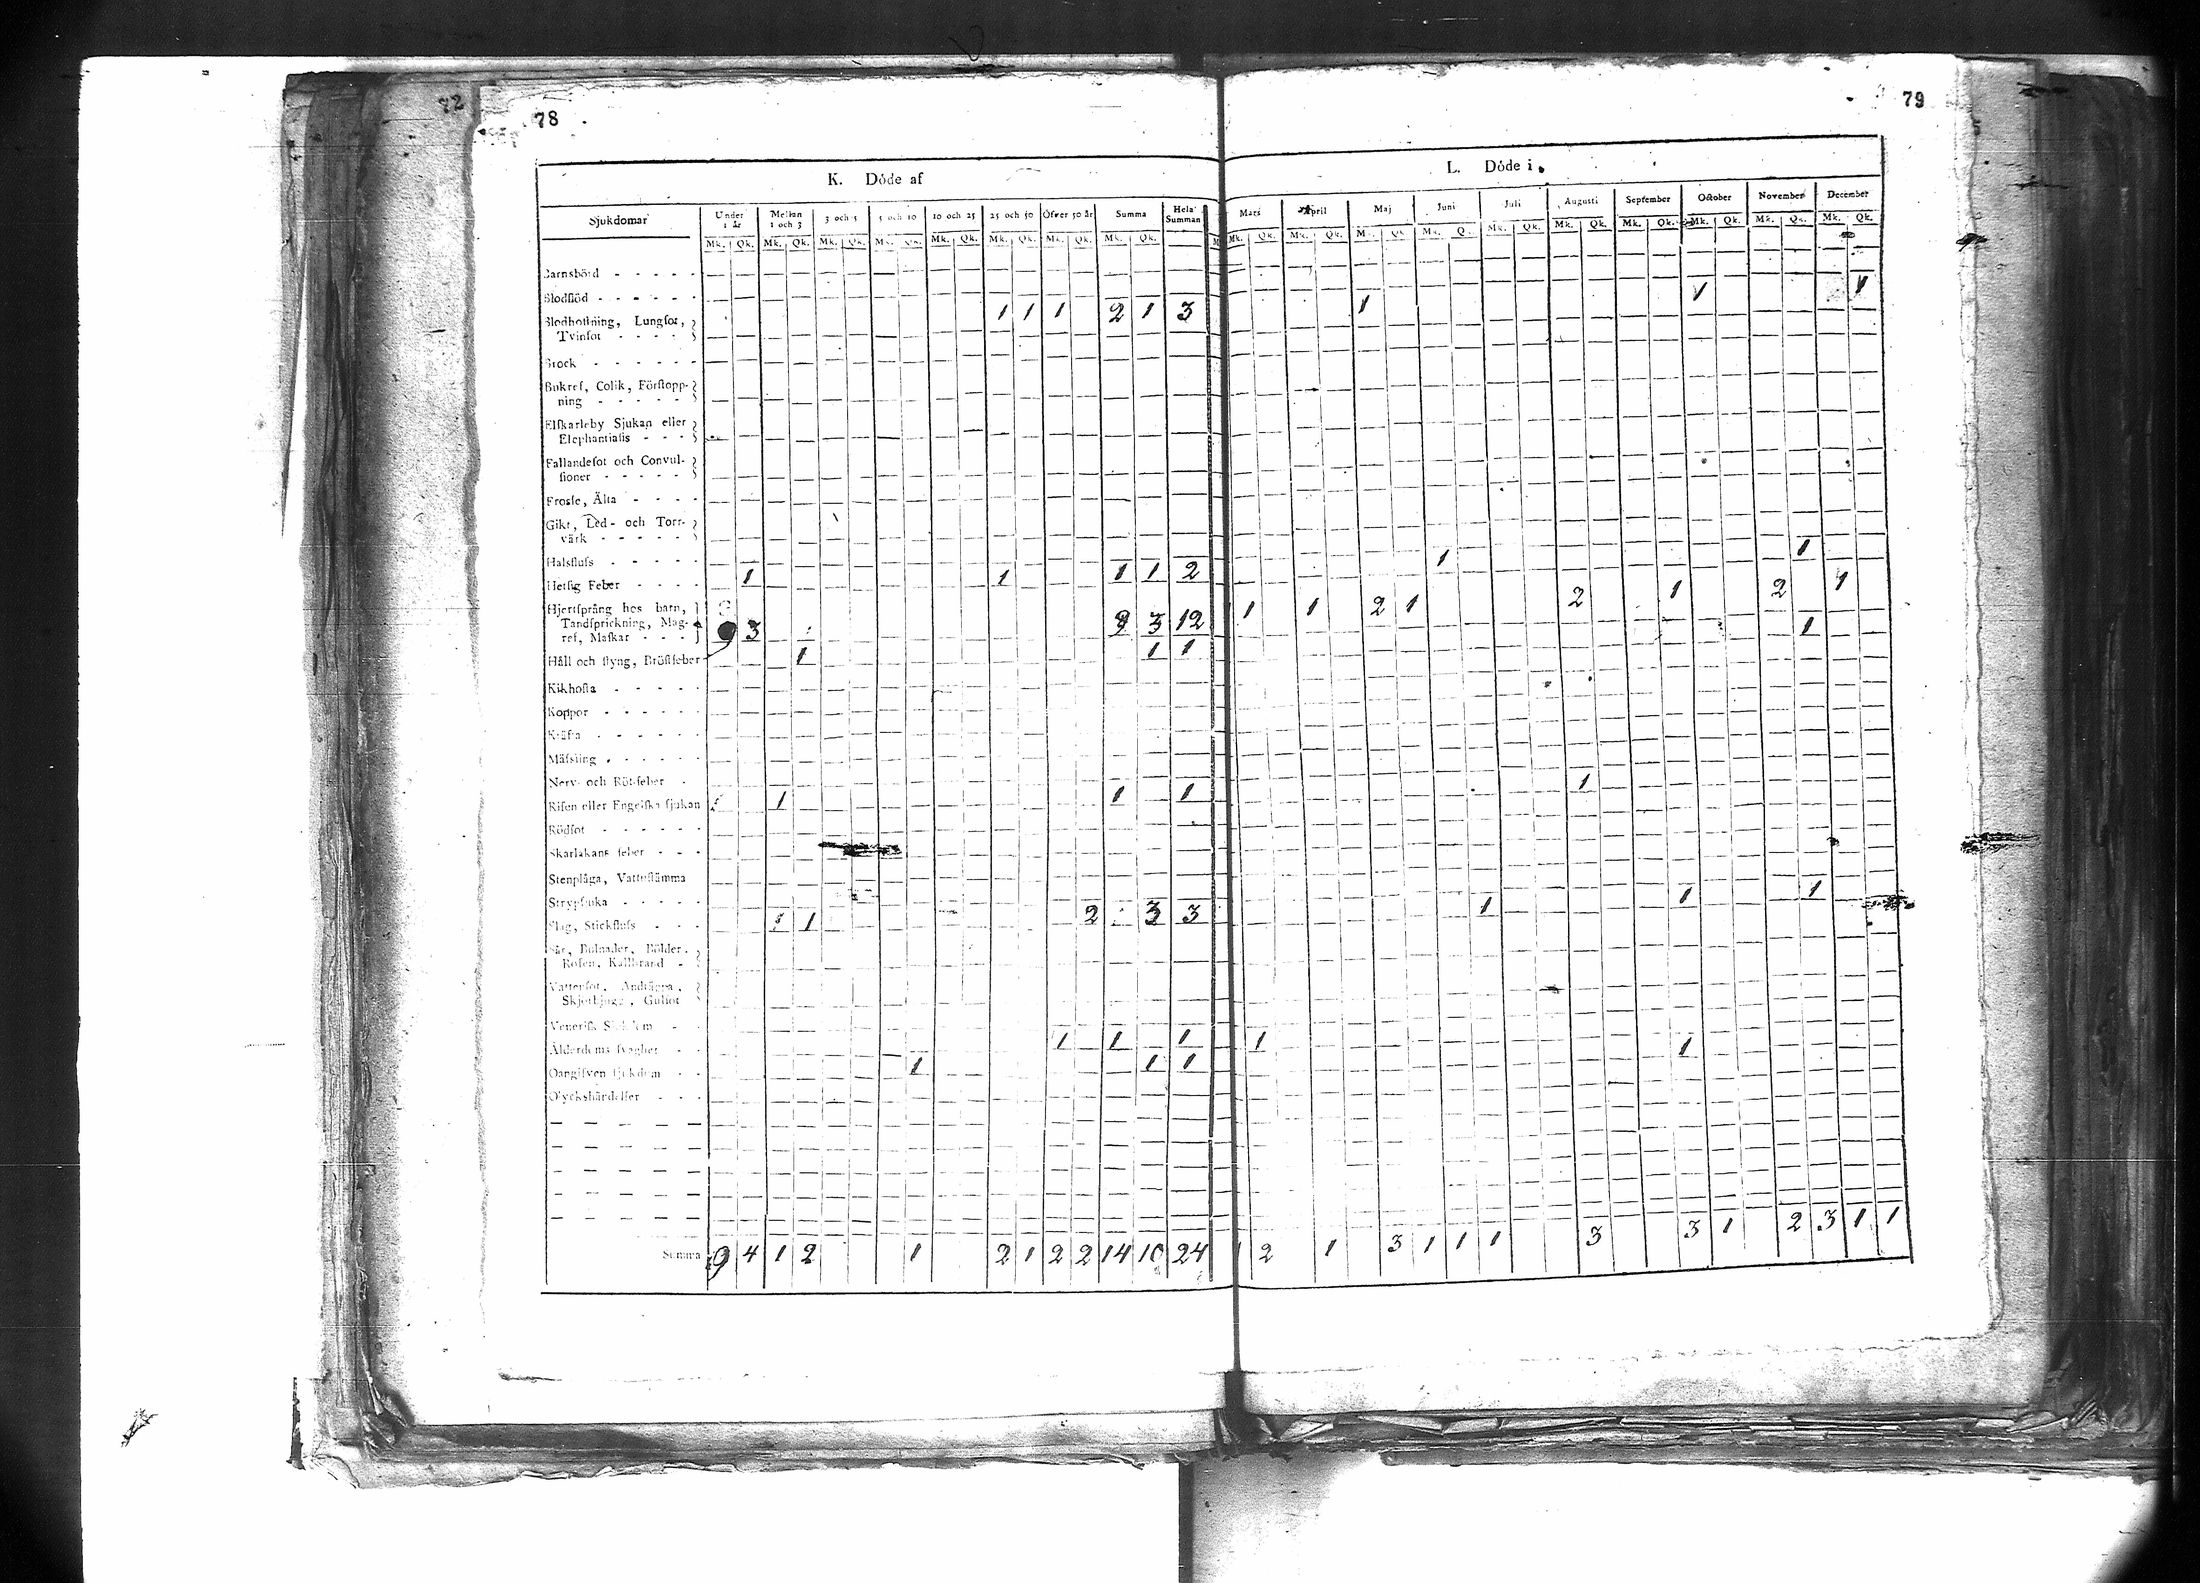 72
78
79
K. Döde af
L. Döde i
Sjukdomar Under 1 år Mellan 1 och 3 3 och 5 5 och 10 10 och 25 25 och 50 Öfver 50 år Summa Hela Summan Mars April Maj Juni Juli Augusti September October November December
Mk. Qk. Mk. Qk. Mk. Qk. Mk. Qk. Mk. Qk. Mk. Qk. Mk. Qk. Mk. Qk. Mk. Qk. Mk. Qk. Mk. Qk. Mk. Qk. Mk. Qk. Mk. Qk. Mk. Qk. Mk. Qk. Mk. Qk. Mk. Qk.
Barnsbörd - - - - -
Blodflöd - - - - - -
Blodhostning, Lungsot, 1 1 1 2 1 3 1 1 1
Tvinsot - - - -
Brock - - - - - -
Bukref, Colik, Förstopp-
ning - - - - -
Elfkarleby Sjukan eller
Elephantiasis - - -
Fallandesot och Convul-
sioner - - - - -
Frossa, Älta - - - -
Gikt, Led- och Torr-
värk - - - - -
Halsfluss - - - - -
Hetsig Feber - - - - 1 1 1 1 2 1 1
Hjertsprång hos barn,
Tandsprickning, Mag- 9 3 9 3 12 1 1 2 1 2 1 2 1
ref, Maskar - - -
Håll och styng, Bröstfeber 1 1 1 1
Kikhosta - - - - -
Koppor - - - - - -
Kräfta - - - - - -
Mässling - - - - - -
Nerv- och Rötfeber -
Risen eller Engelska sjukan 1 1 1 1
Rödsot - - - - - -
Skarlakans feber - - -
Stenplåga, Vattustämma
Strypsjuka - - - - -
Slag, Stickfluss - - - 1 2 3 3 1 1 1
Sår, Bulnader, Bölder,
Rosen, Kallbrand -
Vattusot, Andtäppa,
Skjörbjugg, Gulsot
Venerisk Sjukdom - -
Ålderdoms svaghet - - 1 1 1 1
Oangifven sjukdom - - 1 1 1 1
Olyckshändelser - - -
Summa 9 4 1 2 1 2 1 2 2 14 10 24 1 2 1 3 1 1 1 3 3 1 2 3 1 1